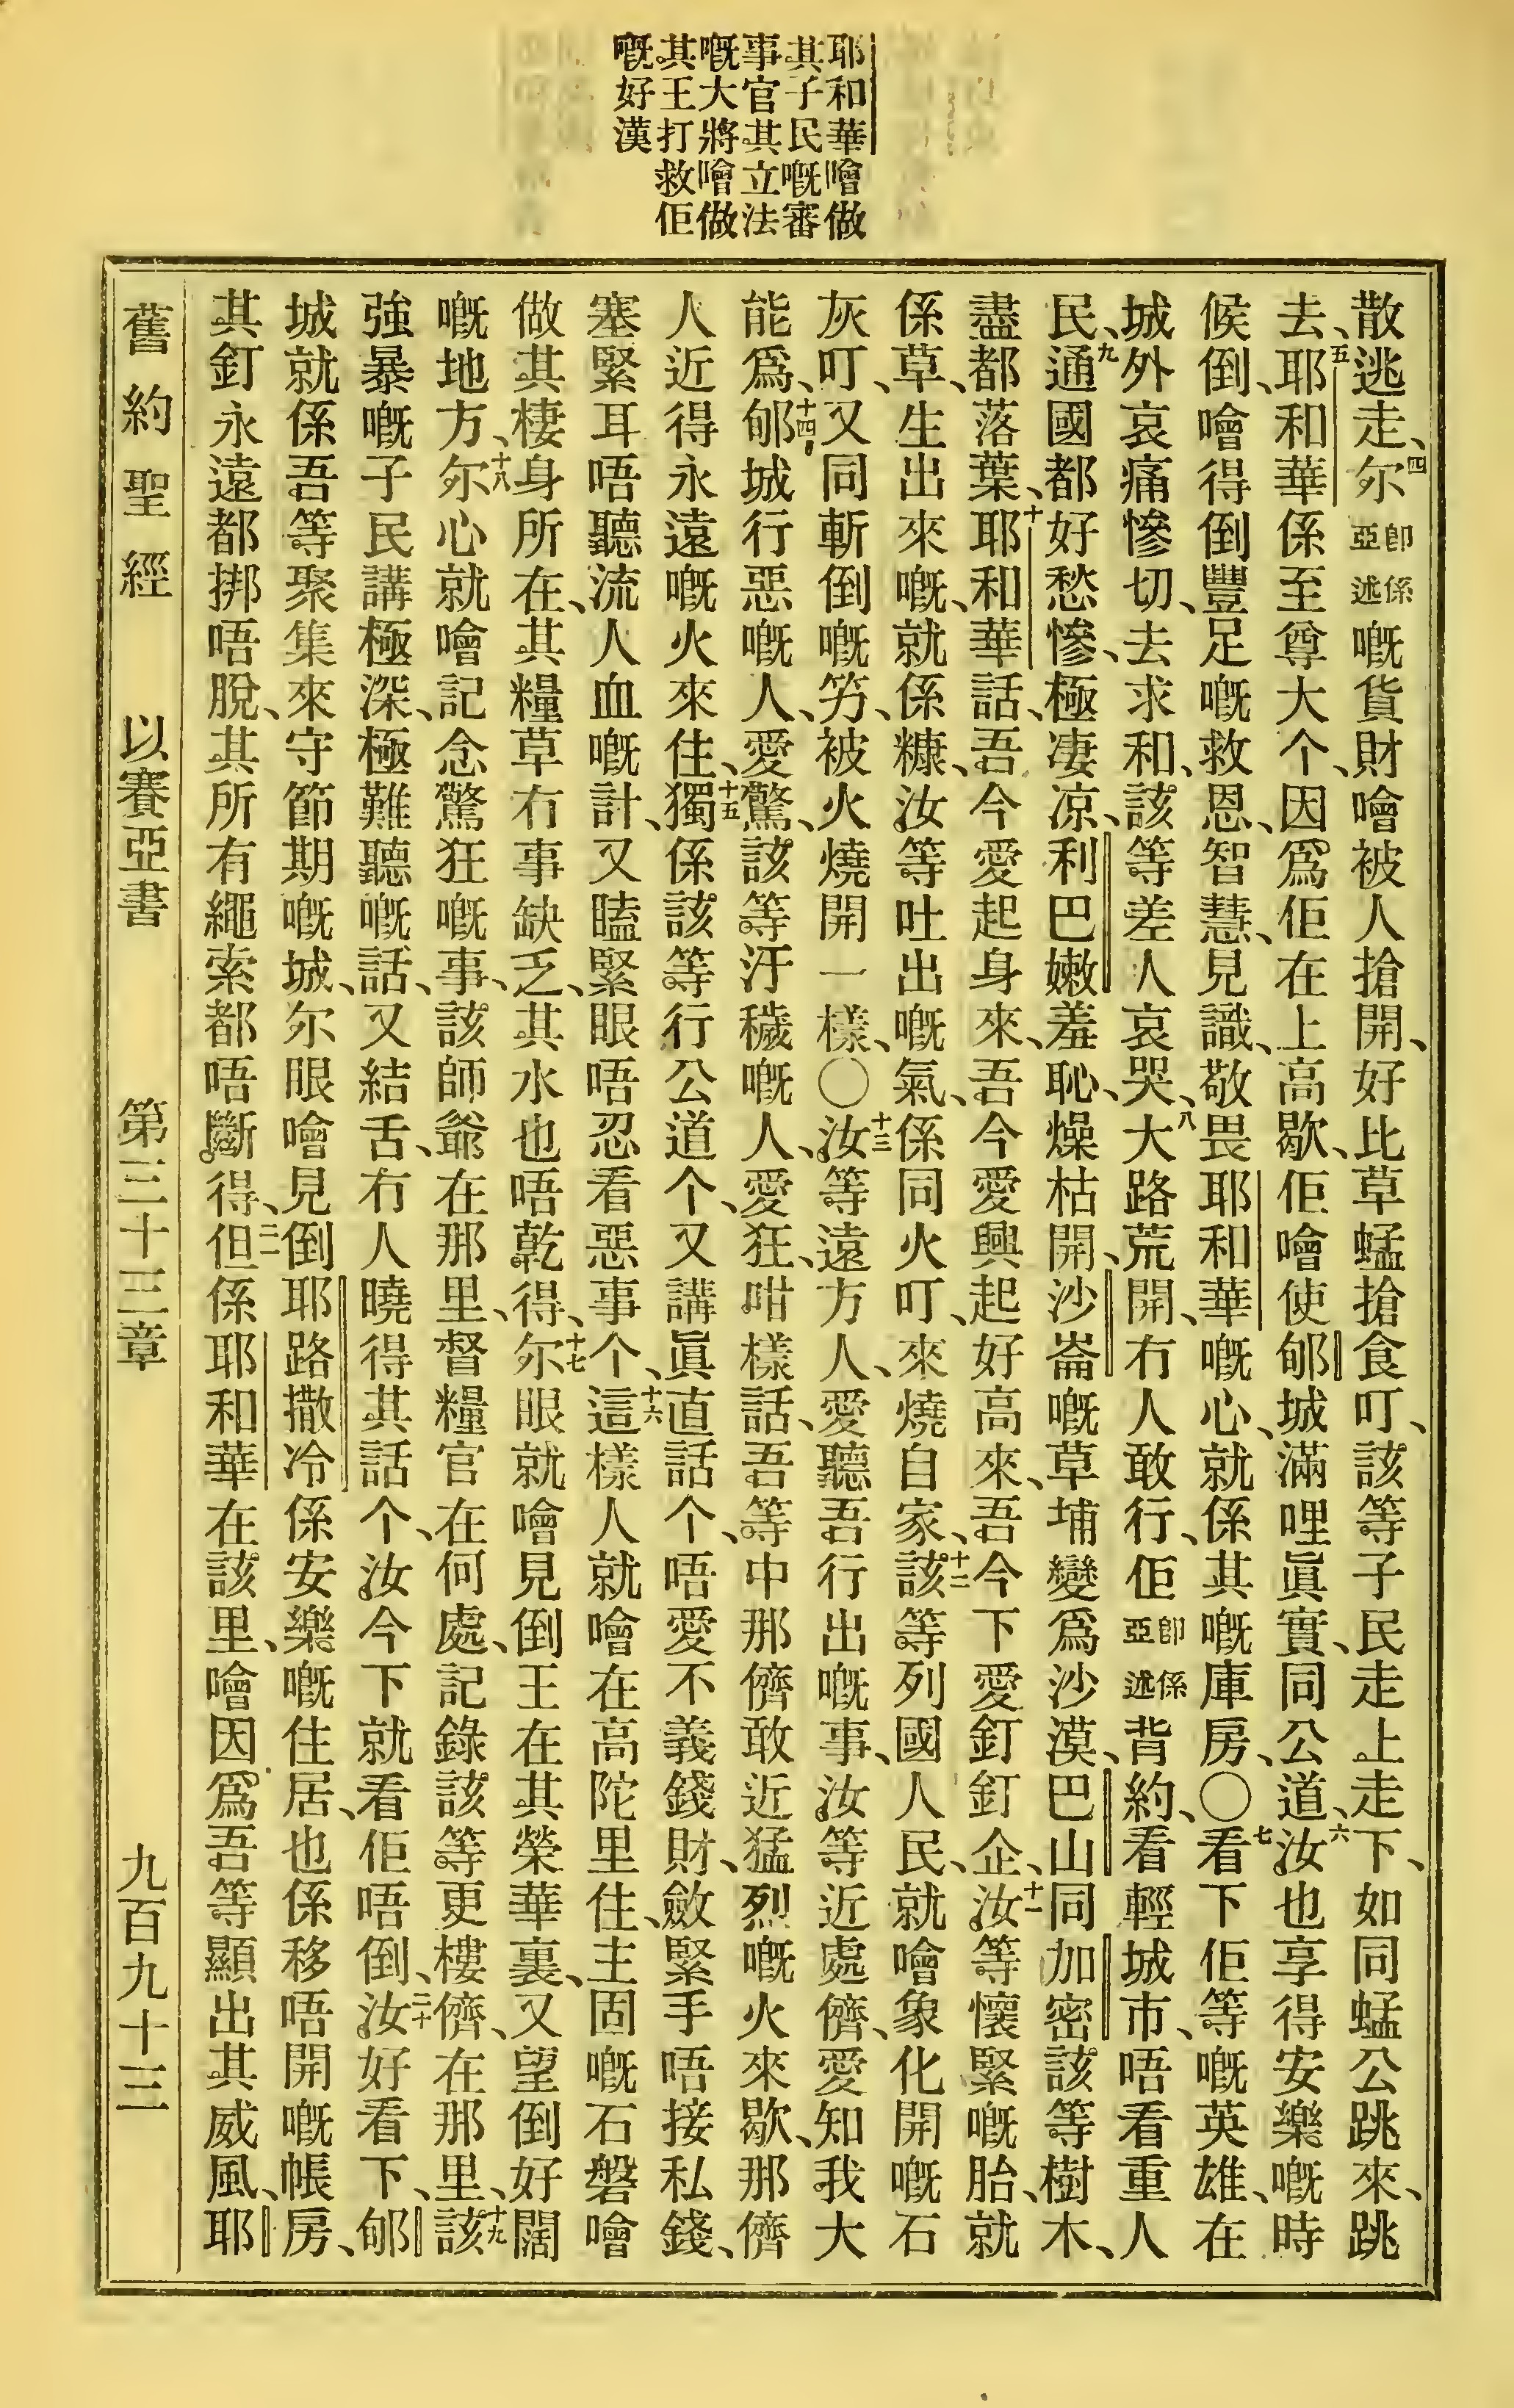 耶和華噲做
其子民嘅審
事官其立法
嘅大將噲做
其王打救佢
嘅好漢
散逃走、四尔卽係亞述嘅貨財噲被人搶開、好比草蜢搶食叮、該等子民走上走下、如同蜢公跳來、跳
去、五耶和華係至尊大个、因爲佢在上高歇、佢噲使郇城滿哩眞實、同公道、六汝也享得安樂嘅時
候倒、噲得倒豐足嘅救恩、智慧、見識、敬畏耶和華嘅心、就係其嘅庫房、〇七看下佢等嘅英雄、在
城外哀痛慘切、去求和、該等差人哀哭、八大路荒開、冇人敢行、佢卽係亞述背約、看輕城市、唔看重人
民、九通國都好愁慘、極淒凉、利巴嫩羞恥、燥枯開、沙崙嘅草埔變爲沙漠、巴山同加密該等樹木、
盡都落葉、十耶和華話、吾今愛起身來、吾今愛興起好高來、吾今下愛釘釘企、十一汝等懷緊嘅胎、就
係草、生出來嘅、就係糠、汝等吐出嘅氣、係同火叮、來燒自家、十二該等列國人民、就噲象化開嘅石
灰叮、又同斬倒嘅竻、被火燒開一樣、〇十三汝等遠方人、愛聽吾行出嘅事、汝等近處儕、愛知我大
能爲、十四郇城行惡嘅人、愛驚、該等汙穢嘅人、愛狂、咁樣話、吾等中那儕敢近猛烈嘅火來歇、那儕
人近得永遠嘅火來住、十五獨係該等行公道个、又講眞直話个、唔愛不義錢財、斂緊手唔接私錢、
塞緊耳唔聽流人血嘅計、又瞌緊眼唔忍看惡事个、十六這樣人就噲在高陀里住、主固嘅石磐噲
做其棲身所在、其糧草冇事缺乏、其水也唔乾得、十七尔眼就噲見倒王在其榮華裏、又望倒好闊
嘅地方、十八尔心就噲記念驚狂嘅事、該師爺在那里、督糧官在何處、記錄該等更樓儕、在那里、十九該
強暴嘅子民講極深、極難聽嘅話、又結舌、冇人曉得其話个、汝今下就看佢唔倒、二十汝好看下、郇
城就係吾等聚集來守節期嘅城、尔眼噲見倒耶路撒冷係安樂嘅住居、也係移唔開嘅帳房、
其釘永遠都挷唔脫、其所有繩索都唔斷得、二一但係耶和華在該里、噲因爲吾等顯出其威風、耶
舊約聖經 以賽亞書 第三十三章 九百九十三